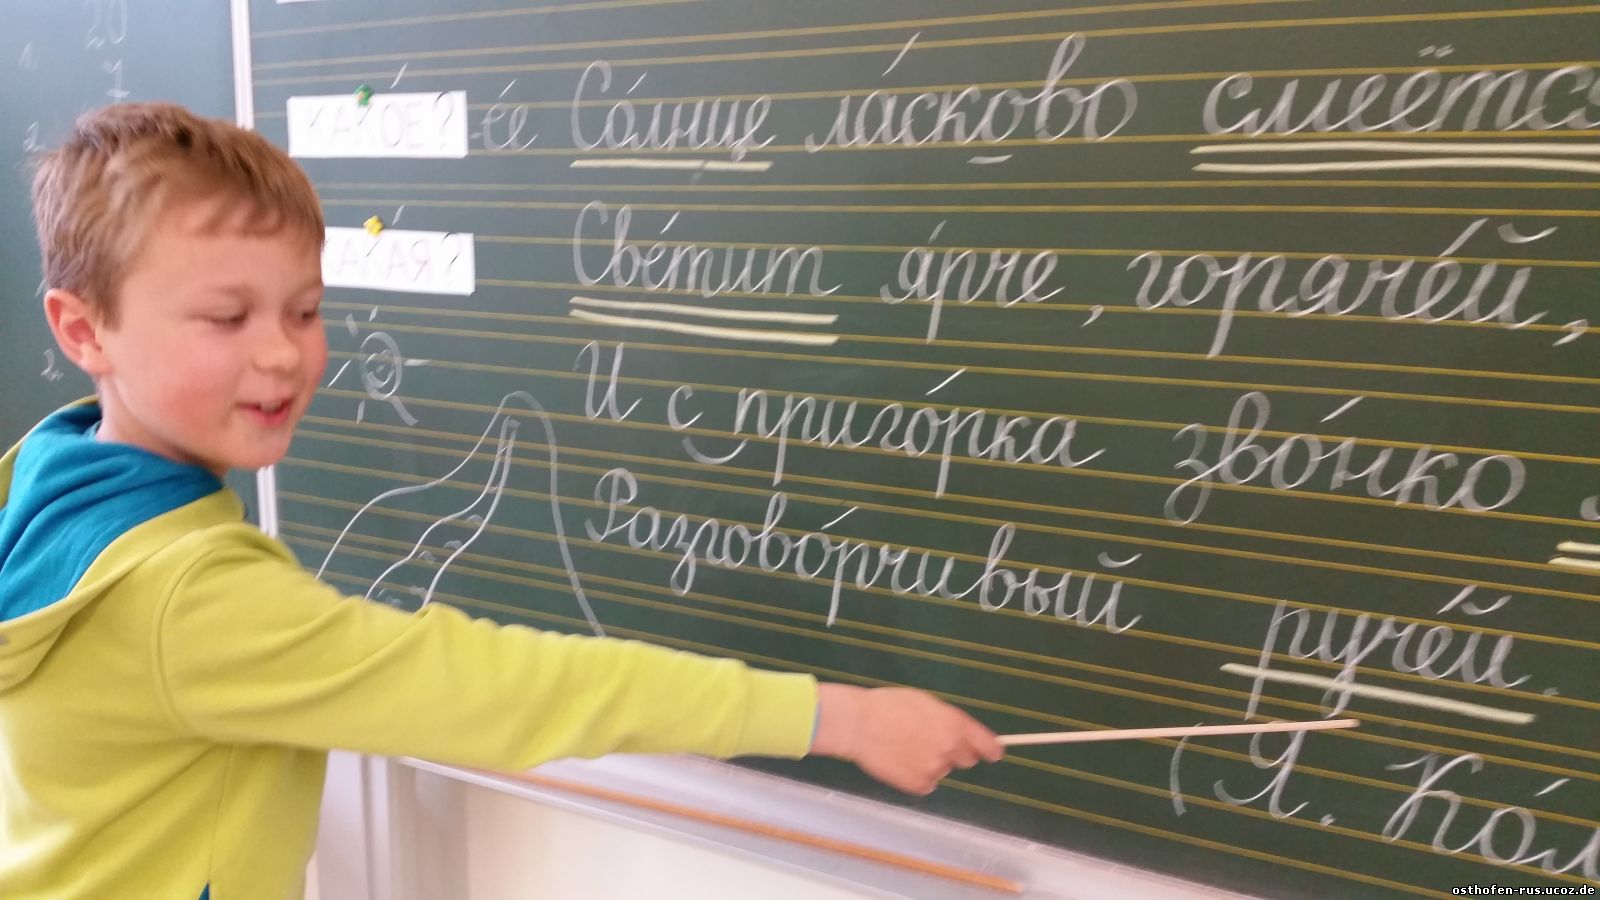 КАКО́Е? -ее Со́лнце ла́сково смеётс
КАКА́Я? Све́тит я́рче, горяче́й,
И с приго́рка зво́нко
Разгово́рчивый ручей.
(Я. Ко́л
osthofen-rus.ucoz.de